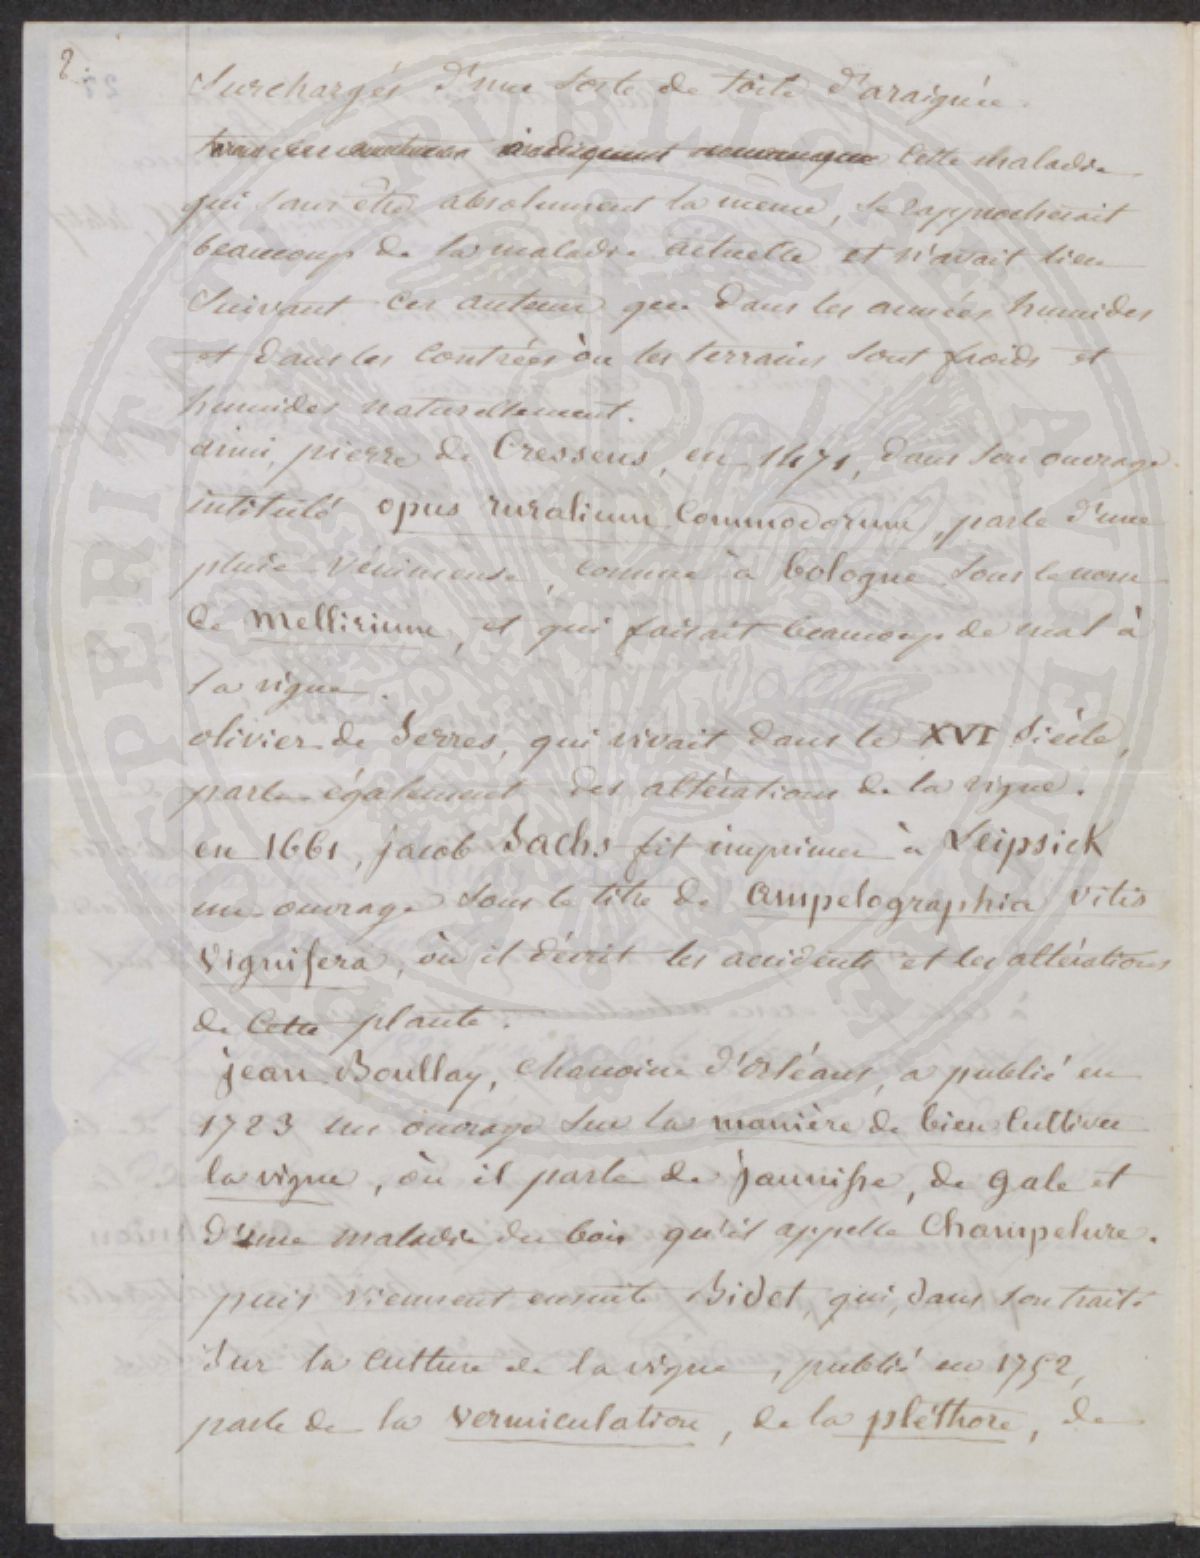 2.
Surchargés d'une sorte de toile d'araignée.
indiquent cette maladie
qui sans être absolument la même, se rapprocherait
beaucoup de la maladie actuelle et n'avait lieu
Suivant ces auteurs que dans les années humides
et dans les contrées où les terrains sont froids et
humides naturellement.
ainsi, pierre de Cressens, en 1471, dans son ouvrage
intitulé opus ruralium Commodorum, parle d'une
pluie vénimeuse, connue à bologne sous le nom
de Mellirium, et qui faisait beaucoup de mal à
la vigne.
olivier de Serres, qui vivait dans le XVI Siècle,
parle également des altérations de la vigne.
en 1661, jacob Sachs fit imprimer à Leipsick
un ouvrage sous le titre de ampelographia vitis
vignifera, où il décrit les accidents et les altérations
de cette plante.
jean Boullay, chanoine d'Orléans, a publié en
1723 un ouvrage sur la manière de bien cultiver
la vigne, où il parle de jaunisse, de gale et
d'une maladie du bois qu'il appelle Champelure.
puis viennent ensuite Bidet, qui, dans son traité
Sur la culture de la vigne, publié en 1752,
parle de la vermiculation, de la pléthore, de